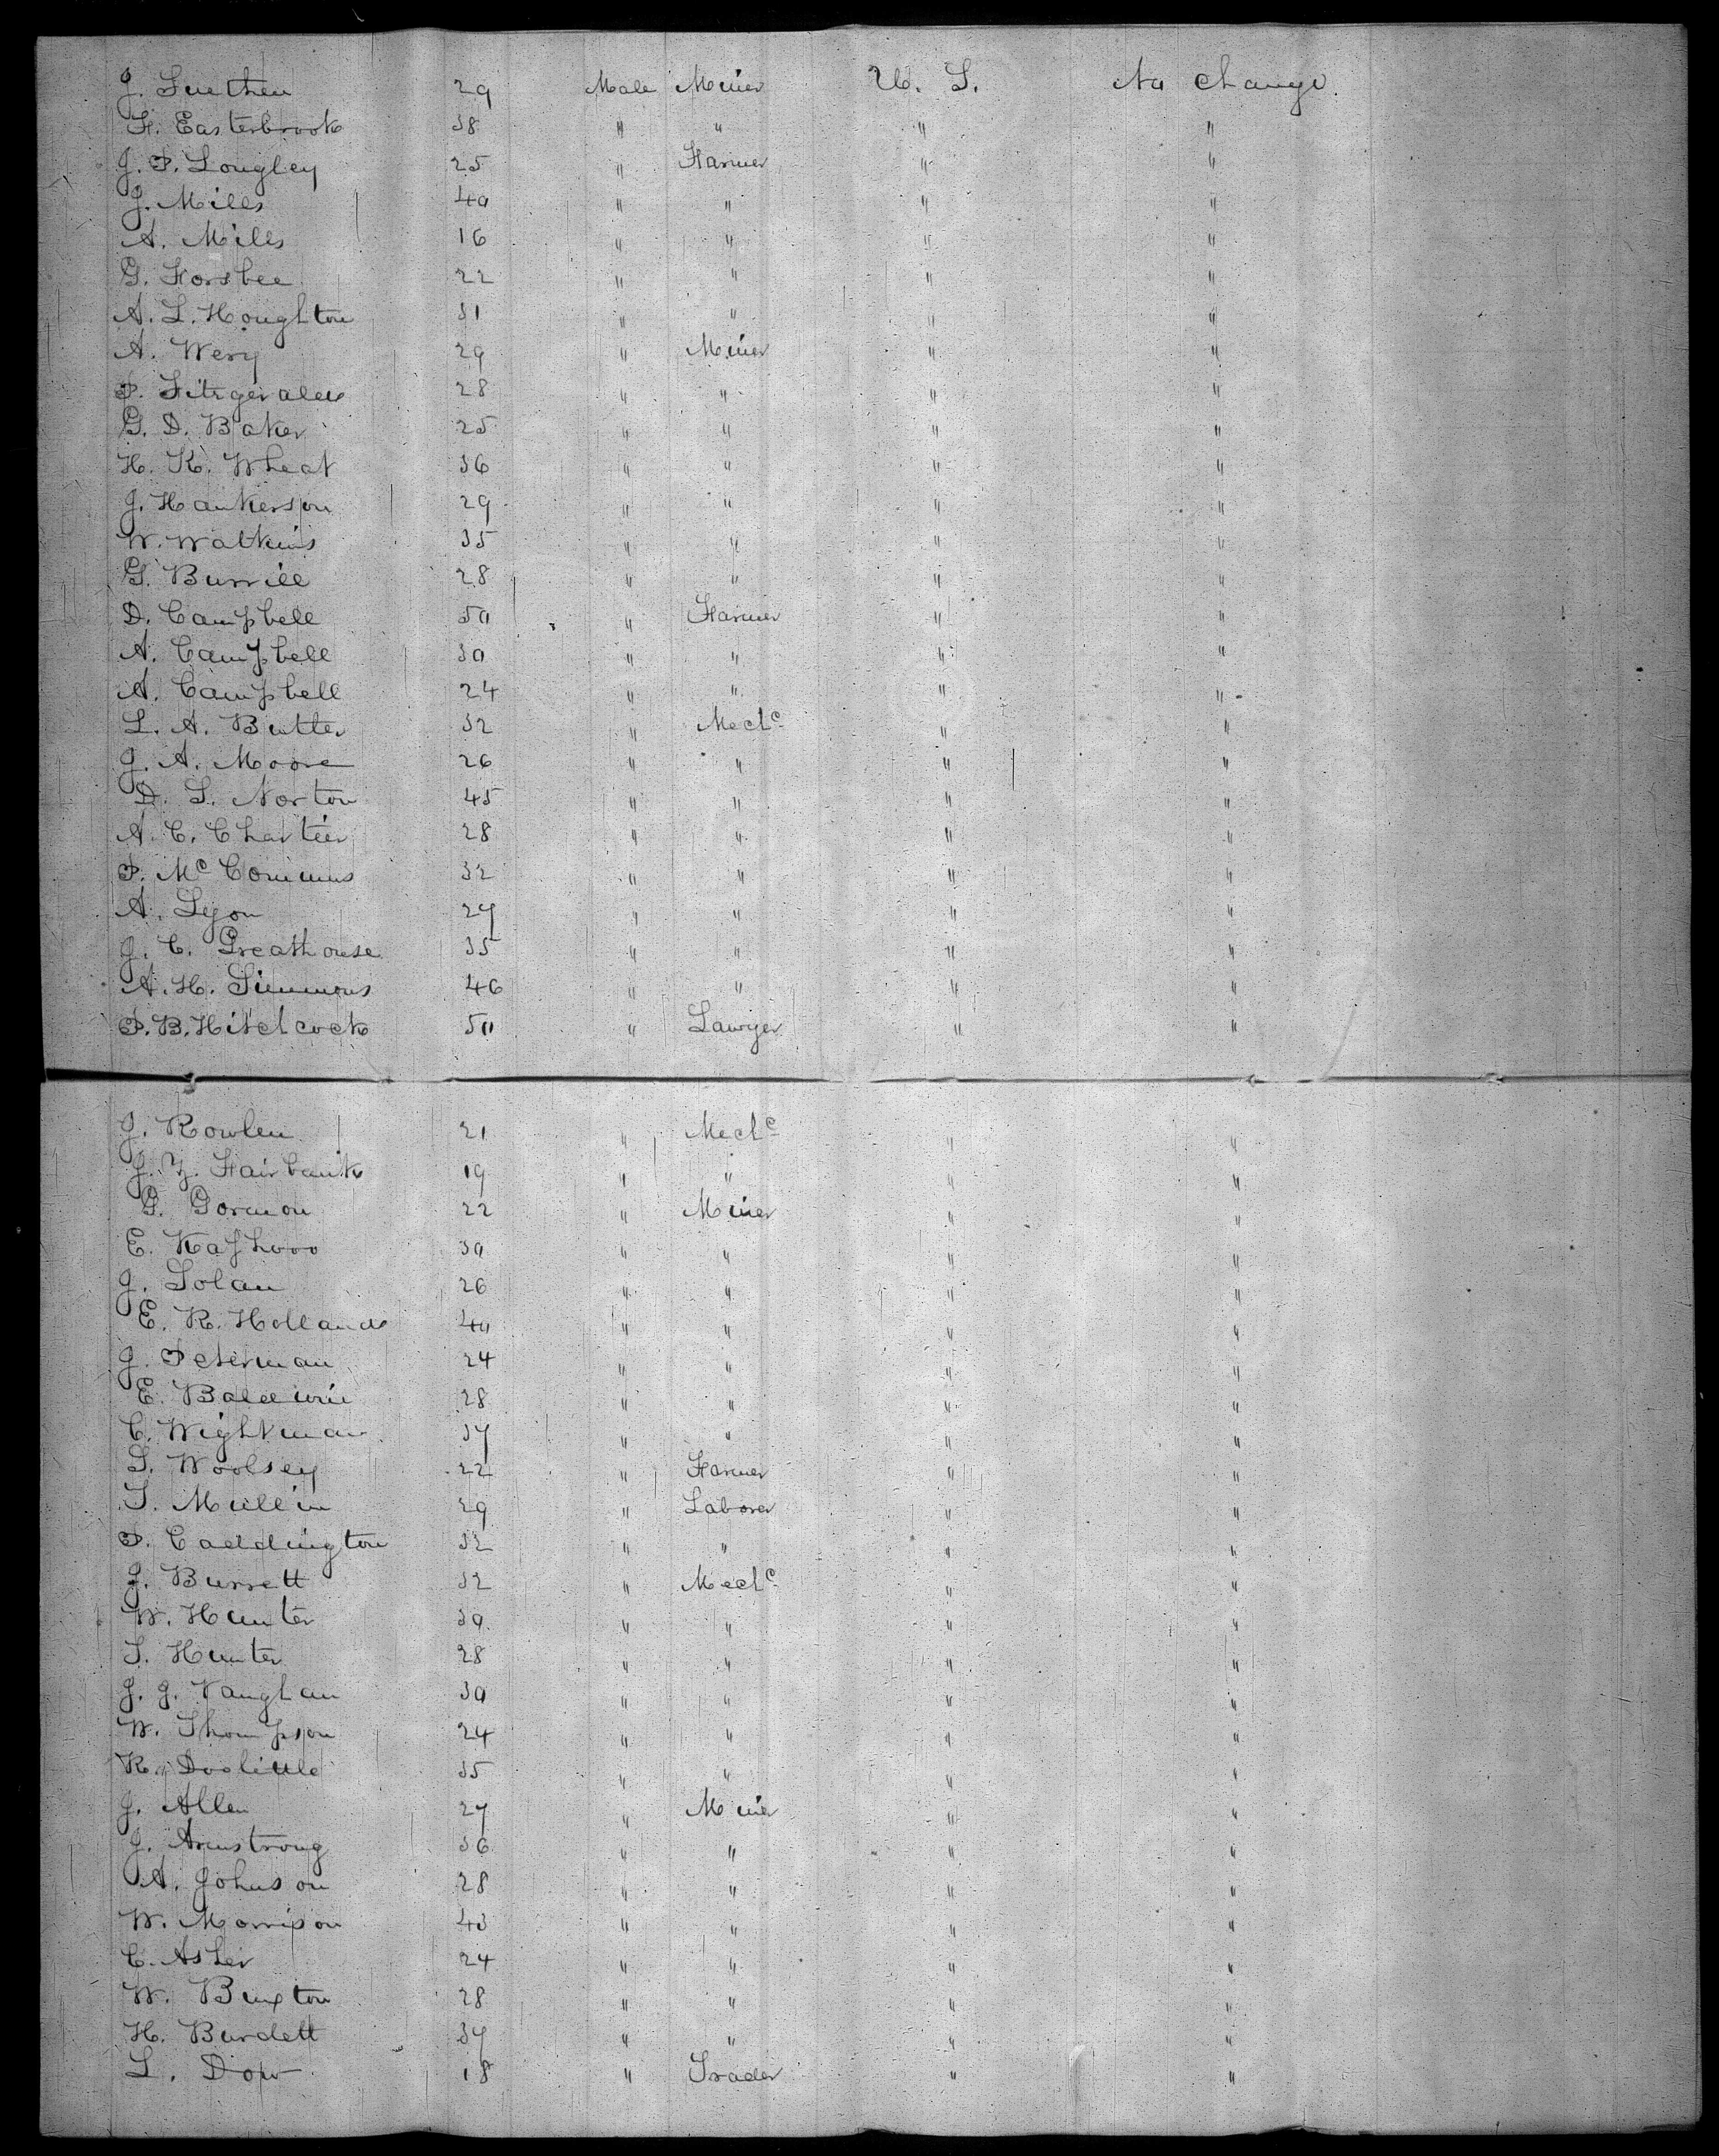 J. Suethen 29 Male Miner U. S. No Change.
F. Easterbrook 38 " " " "
J. P. Longley 25 " Farmer " "
J. Mills 40 " " " "
A. Mills 16 " " " "
G. Forsbee 22 " " " "
A. L. Houghton 31 " " " "
A. Wery 29 " Miner " "
P. Fitzgerald 28 " " " "
G. D. Baker 25 " " " "
H. K. Wheat 36 " " " "
J. Hankerson 29 " " " "
W. Watkins 35 " " " "
G. Burrill 28 " " " "
D. Campbell 50 " Farmer " "
A. Campbell 30 " " " "
A. Campbell 24 " " " "
L. A. Butler 32 " Mechc " "
J. A. Moore 26 " " " "
D. S. Norton 45 " " " "
A. C. Chartier 28 " " " "
P. Mc Commus 32 " " " "
A. Lyon 27 " " " "
J. C. Greathouse 35 " " " "
A. H. Simmons 46 " " " "
P. B. Hitchcock 50 " Lawyer " "
J. Rowlen 21 " Mechc " "
J. Z. Fairbank 19 " " " "
G. Gorman 22 " Miner " "
E. 30 " " " "
J. Solan 26 " " " "
E. R. Holland 40 " " " "
J. Peterman 24 " " " "
E. Baldwin 28 " " " "
C. Wightman 37 " " " "
S. Woolsey 22 " Farmer " "
T. Mullin 29 " Laborer " "
P. Caddington 32 " " " "
J. Burrett 32 " Mechc " "
W. Hunter 30 " " " "
T. Hunter 28 " " " "
J. J. Vaughan 30 " " " "
W. Thompson 24 " " " "
R. Doolittle 35 " " " "
J. Allen 27 " Miner " "
J. Armstrong 36 " " " "
A. Johnson 28 " " " "
W. Morrison 43 " " " "
C. Asher 24 " " " "
W. Buxton 28 " " " "
H. Burdett 37 " " " "
L. Dow 18 " Trader " "